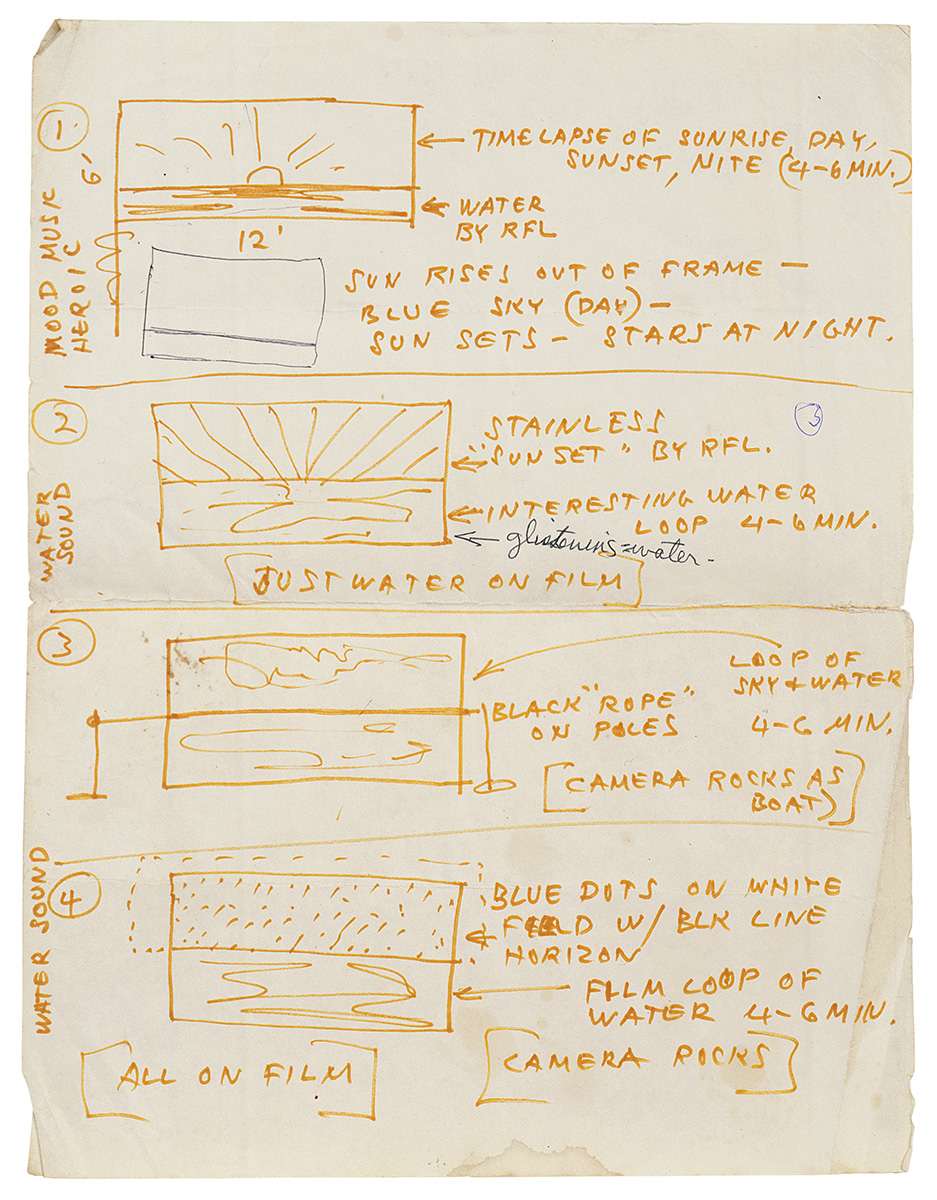 1
MOOD MUSIC
HEROIC
6'
12'
TIME LAPSE OF SUNRISE, DAY,
SUNSET, NITE (4-6 MIN.)
WATER
BY RFL
SUN RISES OUT OF FRAME —
BLUE SKY (DAY) —
SUN SETS — STARS AT NIGHT.
2
WATER
SOUND
3
STAINLESS
"SUNSET" BY RFL.
INTERESTING WATER
LOOP 4-6 MIN.
glistening water.
[JUST WATER ON FILM]
3
LOOP OF
SKY + WATER
4-6 MIN.
BLACK "ROPE"
ON POLES
[CAMERA ROCKS AS
BOAT)]
4
WATER SOUND
BLUE DOTS ON WHITE
FIELD W/ BLK LINE
HORIZON
FILM LOOP OF
WATER 4-6 MIN.
[ALL ON FILM]
[CAMERA ROCKS]